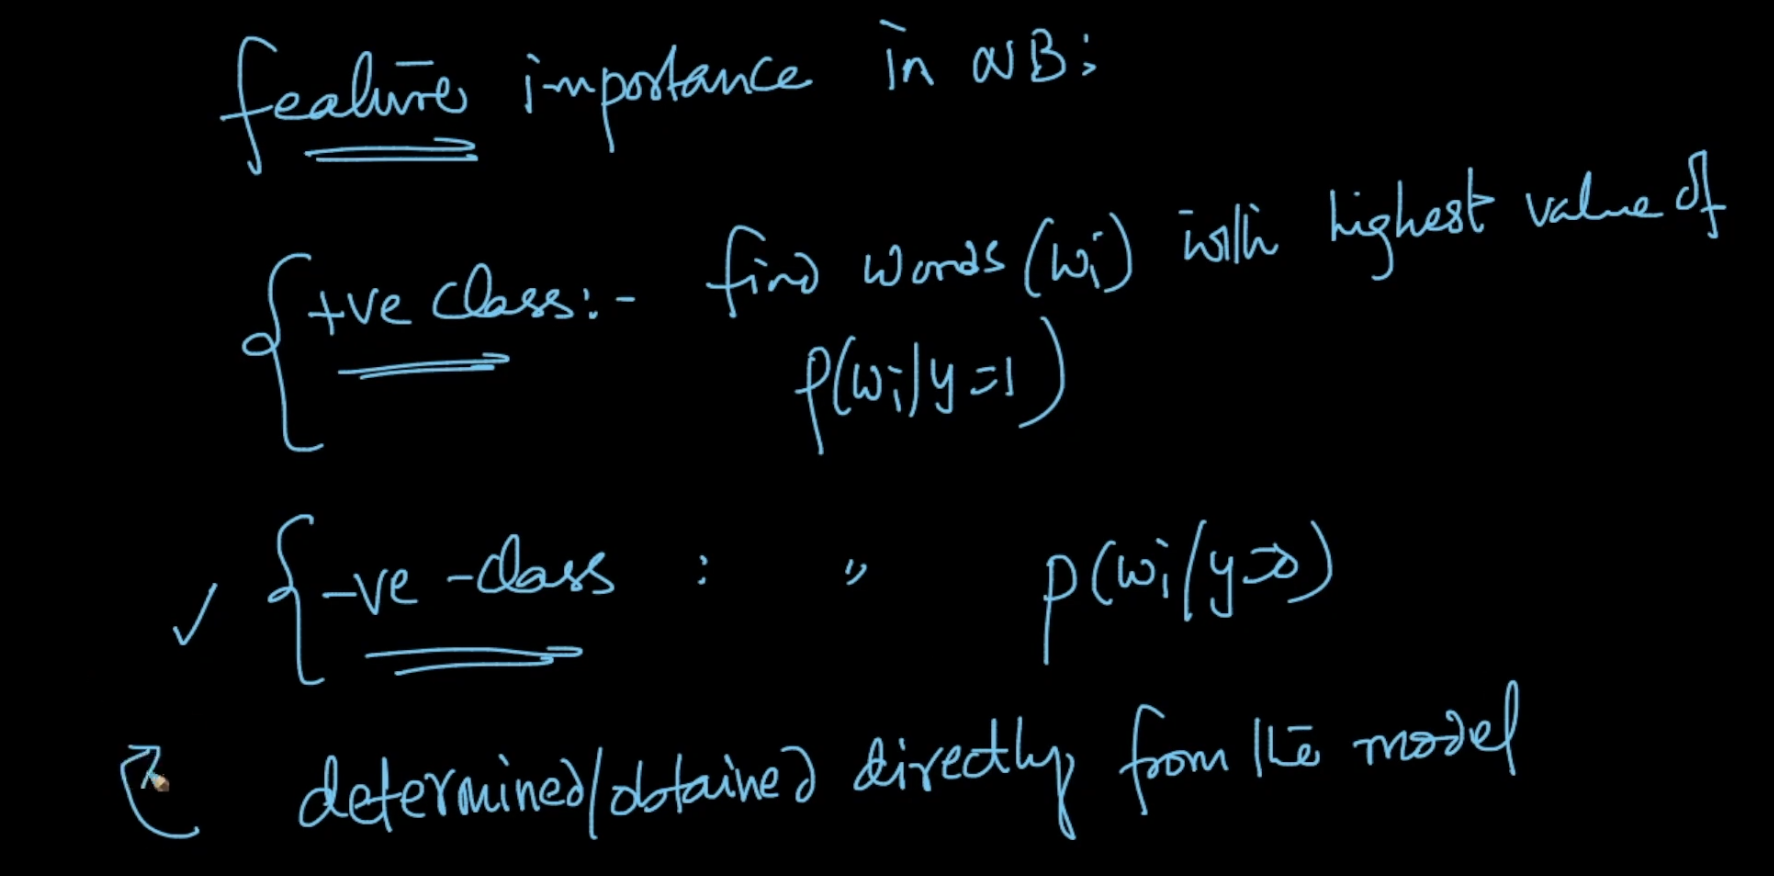 feature importance in NB:
+ve class:- find words (wi) with highest value of
P(wi/y=1)
-ve -class : " P(wi/y=0)
determined/obtained directly from the model